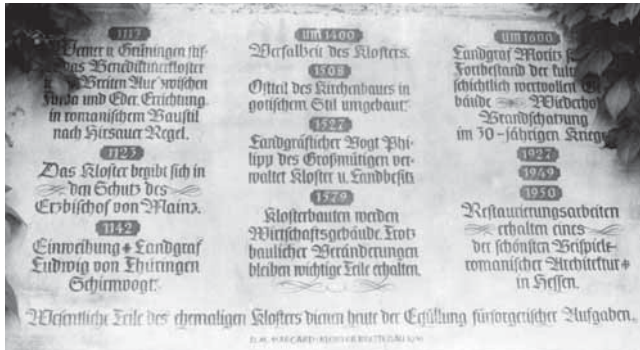 1113
Werner v. Grüningen stif-
das Benediktinerkloster
Breiten Aue zwischen
Fulda und Eder. Errichtung
in romanischem Baustil
nach Hirsauer Regel.
1123
Das Kloster begibt sich in
den Schutz des
Erzbischof von Mainz.
1142
Einweihung + Landgraf
Ludwig von Thüringen
Schirmvogt.
um 1400
Verfallzeit des Klosters.
1508
Ostteil des Kirchenbaues in
gotischem Stil umgebaut.
1527
Landgräflicher Vogt Phi-
lipp des Großmütigen ver-
waltet Kloster u. Landbesitz
1579
Klosterbauten werden
Wirtschaftsgebäude. Trotz
baulicher Veränderungen
bleiben wichtige Teile erhalten.
um 1600
Landgraf Moritz
Fortbestand der
schichtlich wertvollen
bäude
Brandschatzung
im 30-jährigen Kriege
1927
1949
1950
Restaurierungsarbeiten
erhalten eines
der schönsten Beispiele
romanischer Architektur +
in Hessen.
Wesentliche Teile des ehemaligen Klosters dienen heute der Erfüllung fürsorgerischer Aufgaben.